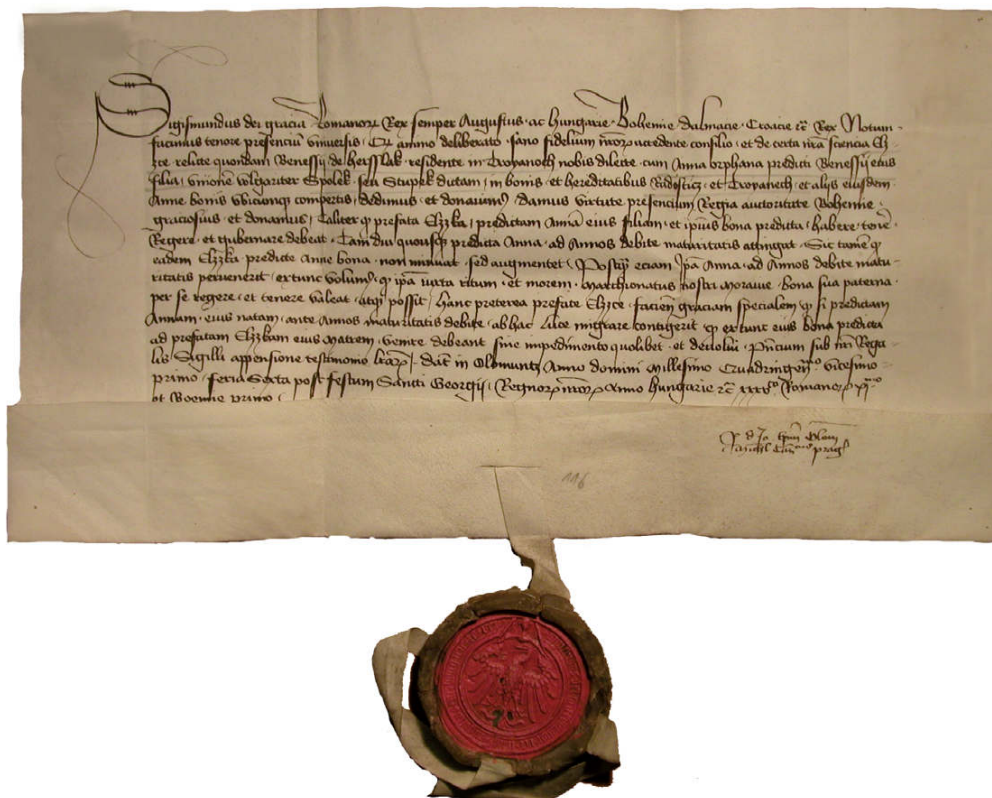 Sigismundus dei gracia Romanorꝝ Rex semper Augustus · ac Hungarie · Bohemie dalmacie · Croacie ꝛc̄ Rex Notum
facimus tenore presenciū vniuersis · animo deliberato · sano fidelium nr̄orꝝ accedente consilio / et de certa nr̄a sciencia Elz
zce · relicte quondam Benessij de · residente in Troyanoch nobis dilecte · cum Anna orphana predicti Benessij eius
filia / vnionē wlgariter Spolek · seu Stupek dictam / in bonis et hereditatibus · et Troyanech · et alijs eiusdem
Anne bonis vbicunqꝫ compertis / dedimus et donauimꝰ / damus virtute presencium Regia autoritate Bohemie ·
graciosius · et donamus / Taliter ꝙ prefata Elzka / predictam Annā eius filiam · et ipsius bona predicta / habere · tenēr̄
Regere · et gubernare debeat · Tam diu quousqꝫ predicta Anna · ad Annos debite maturitatis attingat · Sic tamē ꝙ
eadem Elzka · predicte Anne bona · non minuat · sed augmentet / Postqꝫ eciam Ip̄a Anna · ad Annos debite matu-
ritatis peruenerit · extunc volumꝰ / ꝙ ip̄a iuxta ritum · et morem · Marchionatus nostri Morauie · bona sua paterna ·
per se regere · et tenere valeat · atqꝫ possit / hanc preterea prefate Elzce · facien̄ graciam specialem ꝙ si predictam
Annam · eius natam · ante Annos maturitatis debite · ab hac luce migrare contigerit ꝙ extunc eius bona predicta
ad prefatam Elzkam eius Matrem / venire debeant sine impedimento quolibet · et deuolui · Pn̄cium sub nr̄i Rega-
lis Sigilli appensione testimonio lr̄arꝝ / Dat̄ in Olomuntz Anno domini Millesimo Quadringen̄ᵐᵒ vicesimo
primo · feria Sexta post festum Sancti Georgij / Regnorꝝ nr̄orꝝ Anno hungarie ꝛc̄ xxxvᵒ · Romanorꝝ xjᵐᵒ
et Boemie primo /
116